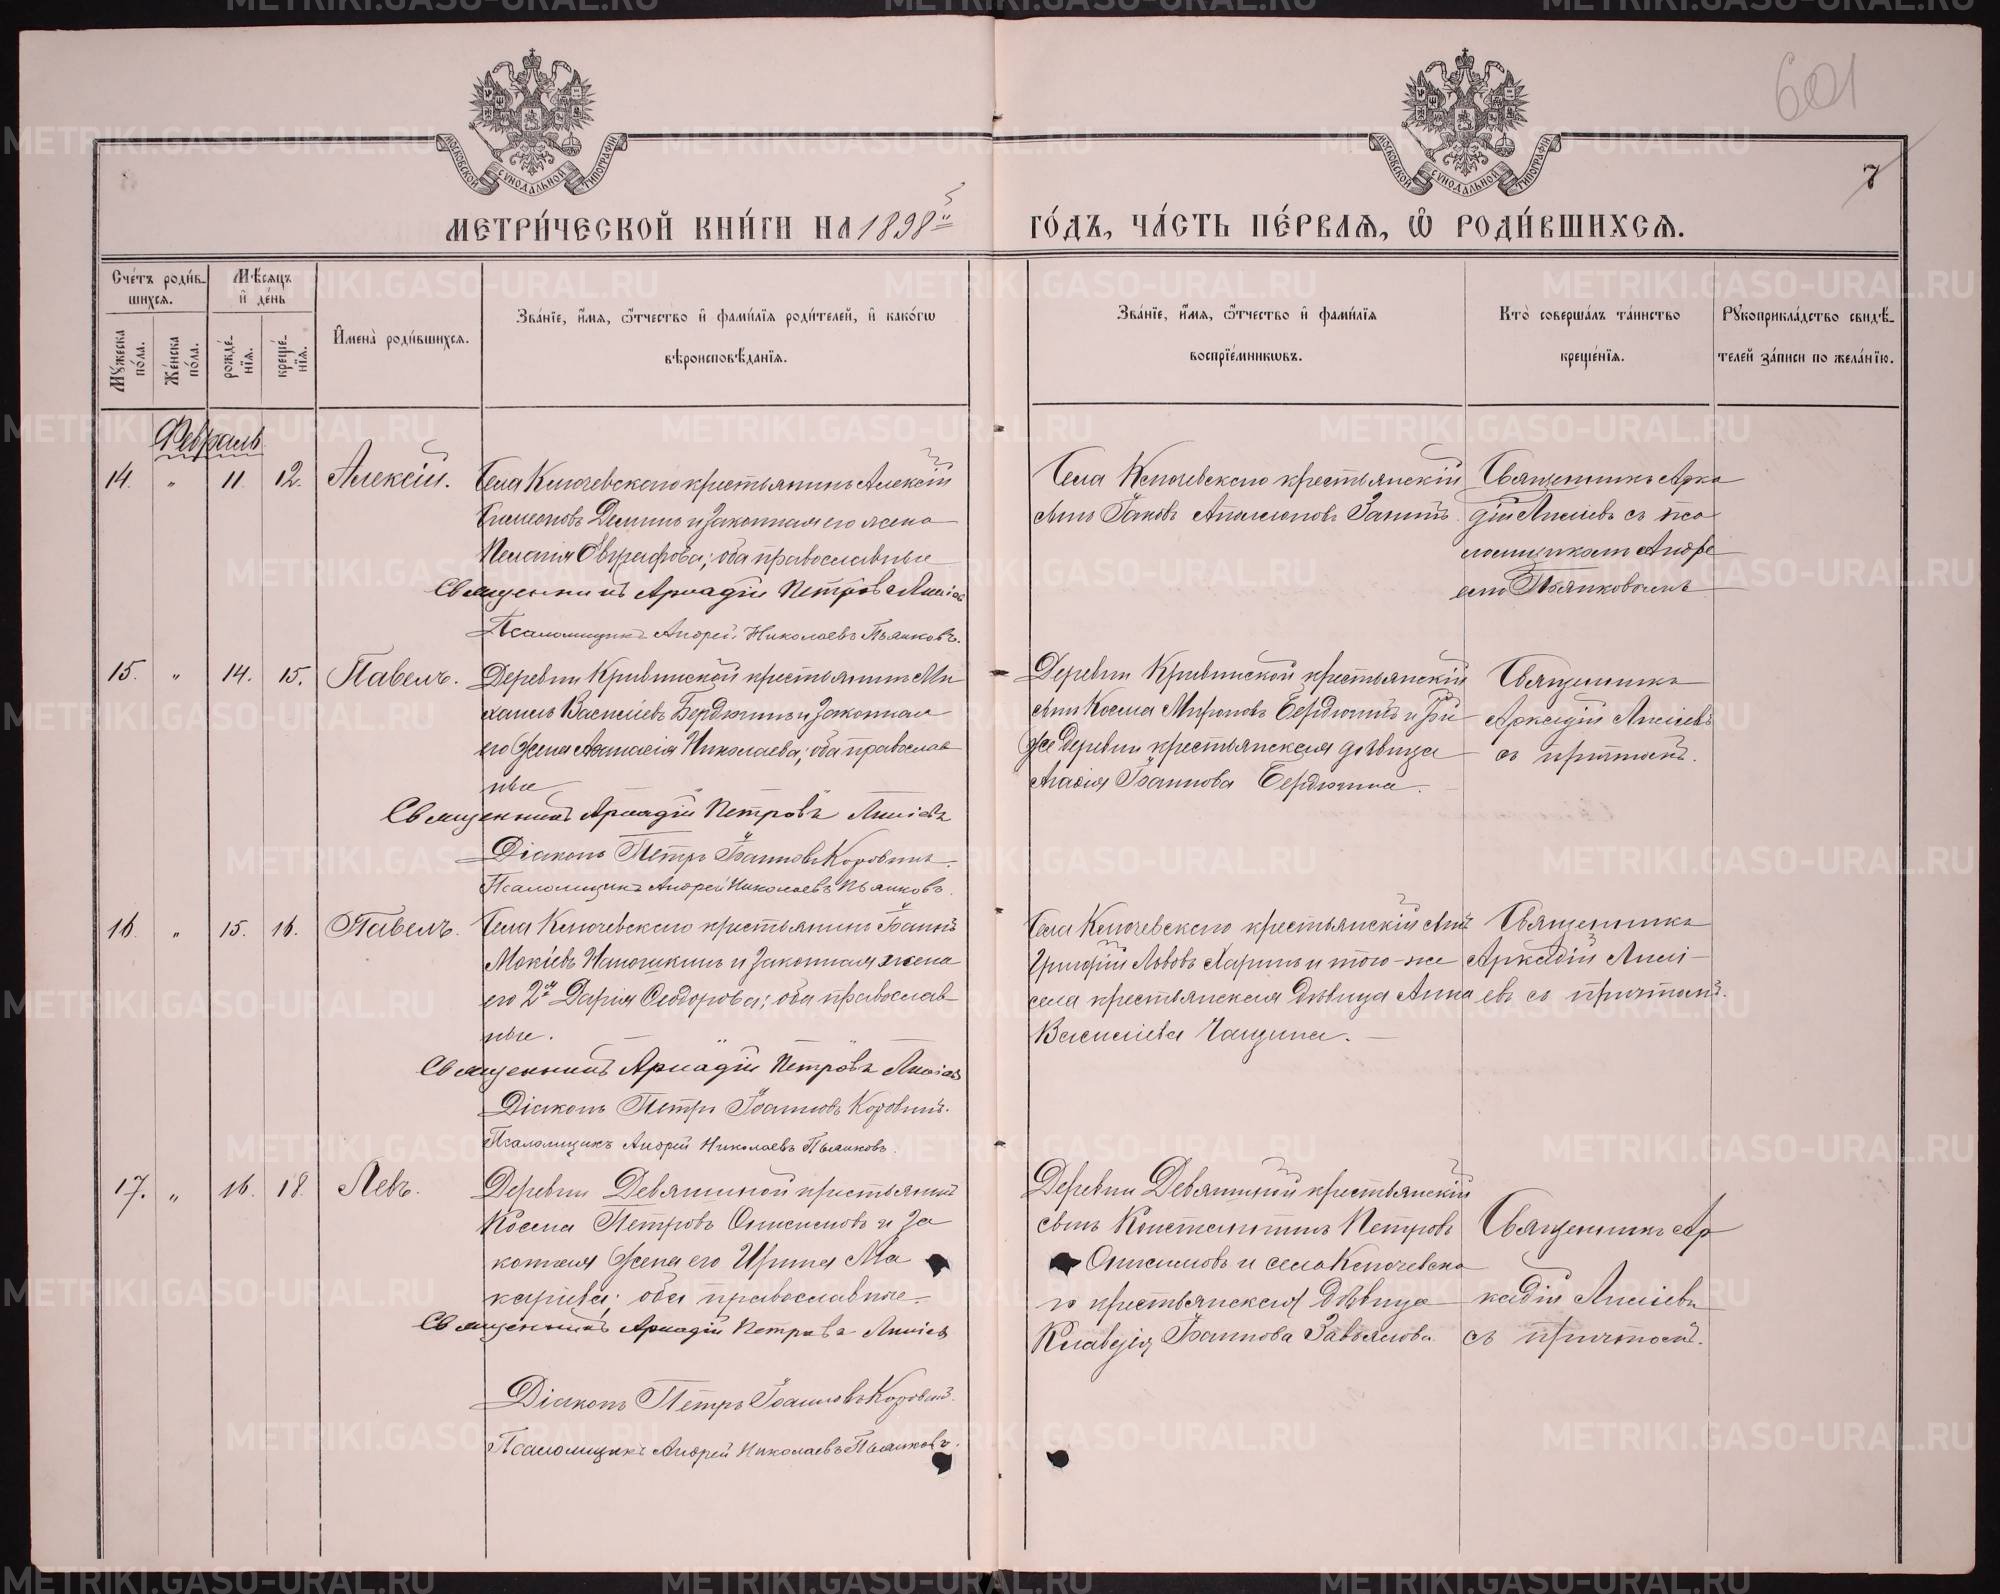 601
7
МЕТРИ́ЧЕСКОЙ КНИ́ГИ НА 1898й ГО́ДЪ, ЧА́СТЬ ПЕ́РВАѦ, Ѡ РОДИ́ВШИХСѦ.
МОСКОВСКОЙ СѴНОДАЛЬНОЙ ТИПОГРАФІИ
МОСКОВСКОЙ СѴНОДАЛЬНОЙ ТИПОГРАФІИ
Сче́тъ роди́в-
шихсѧ.
Мѣ́сѧцъ
и҆ де́нь
Мꙋ́жеска по́ла.
Же́нска по́ла.
рожде́-нїѧ.
креще́-нїѧ.
И҆мена̀ роди́вшихсѧ.
Зва́нїе, и҆́мѧ, ѻ҆́тчество и҆ фами́лїѧ роди́телей, и҆ како́гѡ
вѣроисповѣ́данїѧ.
Зва́нїе, и҆́мѧ, ѻ҆́тчество и҆ фами́лїѧ
воспрїе́мникѡвъ.
Кто̀ соверша́лъ та́инство
креще́нїѧ.
Рꙋкоприкла́дство свидѣ́-
телей за́писи по жела́нїю.
Февраль
14. " 11 12. Алексій.
Села Ключевского крестьянинъ Алексій
Симеоновъ Деминъ и законная его жена
Пелагія Евграфова; оба православные
Священникъ Аркадій Петровъ
Псаломщикъ Андрей Николаевъ Пьянковъ.
Села Ключевского крестьянскій
сынъ Іаковъ
Священникъ Арка
дій съ пса
ломщикомъ Андре
емъ Пьянковымъ
15. " 14. 15. Павелъ.
Деревни Кривинской крестьянинъ Ми
хаилъ Василіевъ Бердюгинъ и законная
его жена Анастасія Николаева; оба православ
ные
Священникъ Аркадій Петровъ
Діаконъ Петръ Іоанновъ Коровинъ.
Псаломщикъ Андрей Николаевъ Пьянковъ.
Деревни Кривинской крестьянскій
сынъ Косма Мироновъ Бердюгинъ и той
же деревни крестьянская дѣвица
Іоаннова Бердюгина.
Священникъ
Аркадій
съ причтомъ.
16. " 15. 16. Павелъ.
Села Ключевского крестьянинъ Іоаннъ
Мокіевъ и законная жена
его 2я Дарія Ѳеодорова; оба православ-
ные.
Священникъ Аркадій Петровъ
Діаконъ Петръ Іоанновъ Коровинъ.
Псаломщикъ Андрей Николаевъ Пьянковъ.
Села Ключевского крестьянскій сынъ
Григорій Львовъ Ларинъ и того-же
села крестьянская дѣвица Анна
Василіева Чащина.
Священникъ
Аркадій
съ причтомъ.
17. " 16. 18. Левъ.
Деревни Девяшиной крестьянинъ
Косма Петровъ Онисимовъ и за
конная жена его Ирина Ма
каріева; оба православные.
Священникъ Аркадій Петровъ
Діаконъ Петръ Іоанновъ Коровинъ.
Псаломщикъ Андрей Николаевъ Пьянковъ.
Деревни Девяшиной крестьянскій
сынъ Константинъ Петровъ
Онисимовъ и села Ключевско
го крестьянская дѣвица
Клавдія Іоаннова Завьялова.
Священникъ Ар
кадій
съ причтомъ.
METRIKI.GASO-URAL.RU